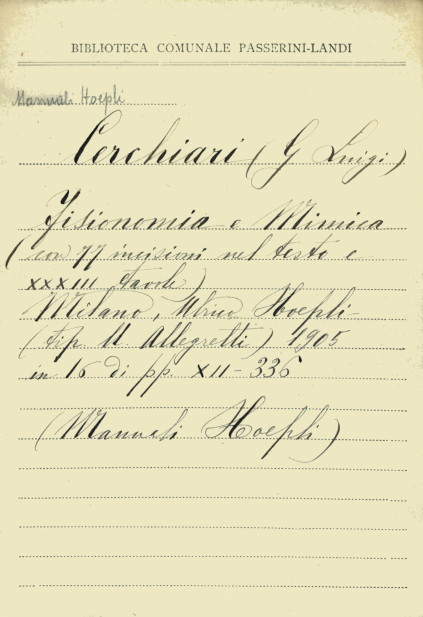 BIBLIOTECA COMUNALE PASSERINI-LANDI
Manuali Hoepli
Cerchiari (G Luigi)
Fisionomia e Mimica
(con 77 incisioni nel testo e
XXXIII tavole)
Milano, Ulrico Hoepli
(tip U. Allegretti) 1905
in 16 di pp. XII-336
(Manuali Hoepli)